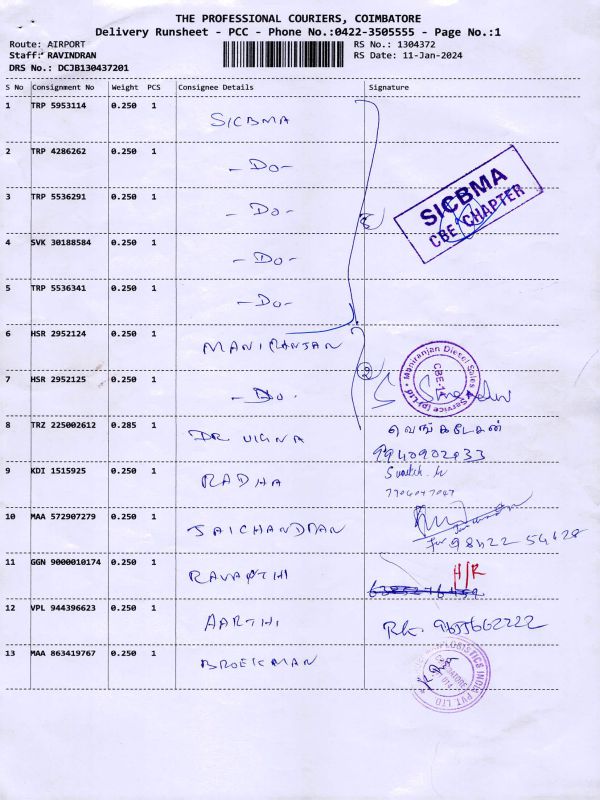 THE PROFESSIONAL COURIERS, COIMBATORE
Delivery Runsheet - PCC - Phone No.:0422-3505555 - Page No.:1
Route: AIRPORT RS No.: 1304372
Staff: RAVINDRAN RS Date: 11-Jan-2024
DRS No.: DCJB130437201
S No Consignment No Weight PCS Consignee Details Signature
1 TRP 5953114 0.250 1 SICBMA
2 TRP 4286262 0.250 1 -Do-
3 TRP 5536291 0.250 1 -Do-
SICBMA
CBE CHAPTER
4 SVK 30188584 0.250 1 -Do-
5 TRP 5536341 0.250 1 -Do-
6 HSR 2952124 0.250 1 MANIRANJAN
Maniranjan Diesel Sales & Service (p) Ltd
CBE-14
7 HSR 2952125 0.250 1 -Do-
8 TRZ 225002612 0.285 1 DR VIGNA வெங்கடேசன்
9940902033
9 KDI 1515925 0.250 1 RADHA
10 MAA 572907279 0.250 1 JAICHANDMAN
11 GGN 9000010174 0.250 1 H/R
12 VPL 944396623 0.250 1 AARTHI 9655662222
13 MAA 863419767 0.250 1 BROEKMAN
LOGISTICS INDIA PVT LTD